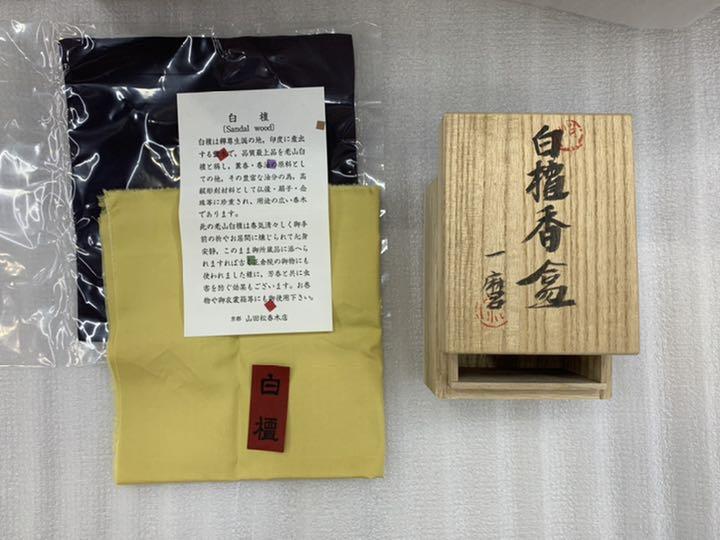 白檀
(Sandal wood)
白檀は釋尊生誕の地，印度に産出
する で，品質最上品を老山白
檀と称し，薫香・香 の原料とし
ての他，その豊富な油分の為，高
級彫刻材料として仏像・扇子・念
珠等に珍重され，用途の広い香木
であります。
此の老山白檀は香気清々しく御手
前の折やお居間に燻じられて心身
安静，このまま御所蔵品に添へら
れますれば古 正倉院の御物にも
使われました様に，芳香と共に虫
害を防ぐ効果もございます。お巻
物や御衣裳箱等にも御使用下さい。
京都 山田松香木店
白檀
白檀香盒
一磨